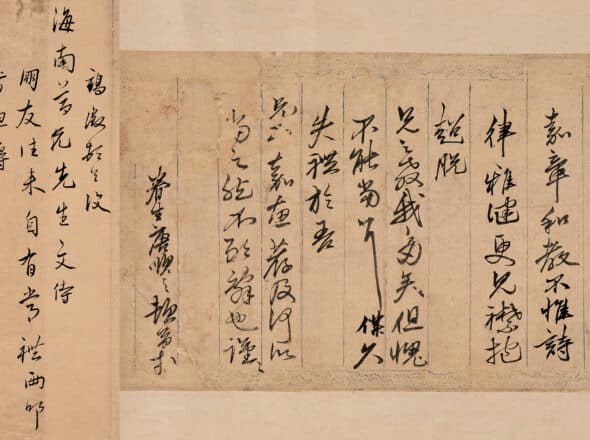 嘉章和教不惟詩
律雅健更見襟抱
超脫
兄之教我多矣但愧
不能當 僕久
失禮於吾
兄 嘉惠荐及何以
當之然不敢辭也謹
眷生唐順之頓首
海南 先生文侍
朋友往來自有常禮